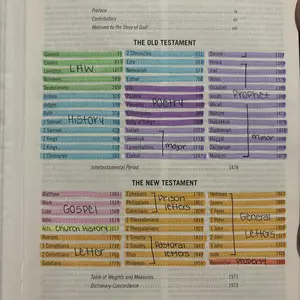 Preface
Contributors
Welcome to the Story of God!
THE OLD TESTAMENT
Genesis
Exodus
Leviticus
Numbers
Deuteronomy
Joshua
Judges
Ruth
1 Samuel
2 Samuel
1 Kings
2 Kings
1 Chronicles
LAW
History
2 Chronicles
Ezra
Nehemiah
Esther
Job
Poetry
Isaiah
Jeremiah
Lamentations
Ezekiel
major
Daniel
Hosea
Joel
Prophets
Zephaniah
Haggai
Zechariah
Malachi
minor
Intertestamental Period
THE NEW TESTAMENT
Matthew
Mark
Luke
John
GOSPEL
Acts
Church History
Romans
1 Corinthians
2 Corinthians
Galatians
Letter
Ephesians
Philippians
Colossians
Prison letters
1 Thessalonians
2 Thessalonians
1 Timothy
2 Timothy
Titus
Philemon
Pastoral letters
Hebrews
James
1 Peter
2 Peter
1 John
2 John
3 John
Jude
General Letters
Revelation
Table of Weights and Measures 1971
Dictionary-Concordance 1973